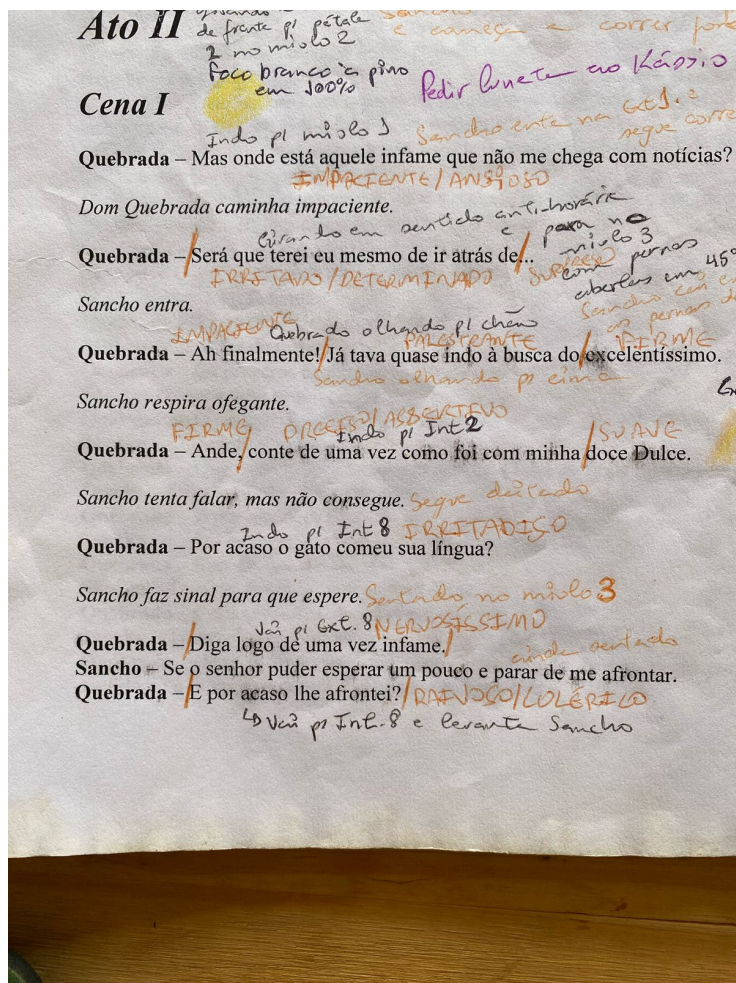 de frente p/ pétale
e começa a correr
Ato II
2 no miolo 2
foco branco a pino
em 100%
Pedir luneta ao Kássio
Cena I
Indo p/ miolo 1
Sancho entra na Ext 1. e
segue
Quebrada – Mas onde está aquele infame que não me chega com notícias?
IMPACIENTE/ANSIOSO
Dom Quebrada caminha impaciente.
Girando em sentido anti-horário
e para no
Quebrada – /Será que terei eu mesmo de ir atrás de/...
miolo 3
IRRITADO/DETERMINADO
com pernas
abertas em 45°
Sancho entra.
as pernas
IMPACIENTE
Quebrado olhando p/ chão
PALESTRANTE
/FIRME
Quebrada – Ah finalmente!/Já tava quase indo à busca do/excelentíssimo.
Sancho olhando p/ cima
Sancho respira ofegante.
FIRME
PRECISO/ASSERTIVO
Indo p/ Int 2
/SUAVE
Quebrada – Ande,/conte de uma vez como foi com minha/doce Dulce.
Sancho tenta falar, mas não consegue. Segue deitado
Indo p/ Int 8 IRRITADIÇO
Quebrada – Por acaso o gato comeu sua língua?
Sancho faz sinal para que espere. Sentado no miolo 3
Vai p/ Ext. 8 NERVOSÍSSIMO
Quebrada – /Diga logo de uma vez infame./
ainda sentado
Sancho – Se o senhor puder esperar um pouco e parar de me afrontar.
Quebrada – /E por acaso lhe afrontei?/RAIVOSO/COLÉRICO
↳ Vai p/ Int. 8 e levanta Sancho